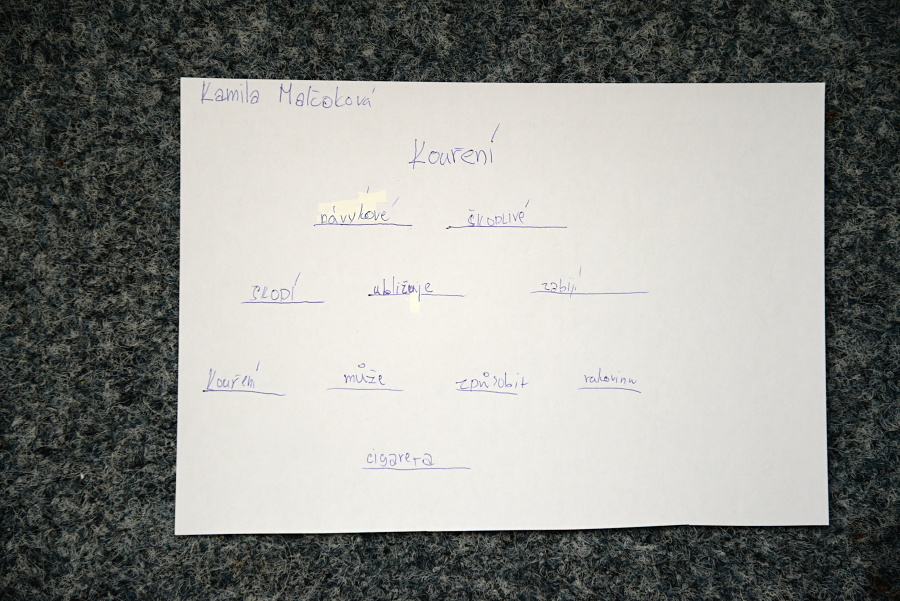 Kamila Matoková
Kouření
návykové škodlivé
škodí ubližuje zabíjí
Kouření může způsobit rakovinu
cigareta